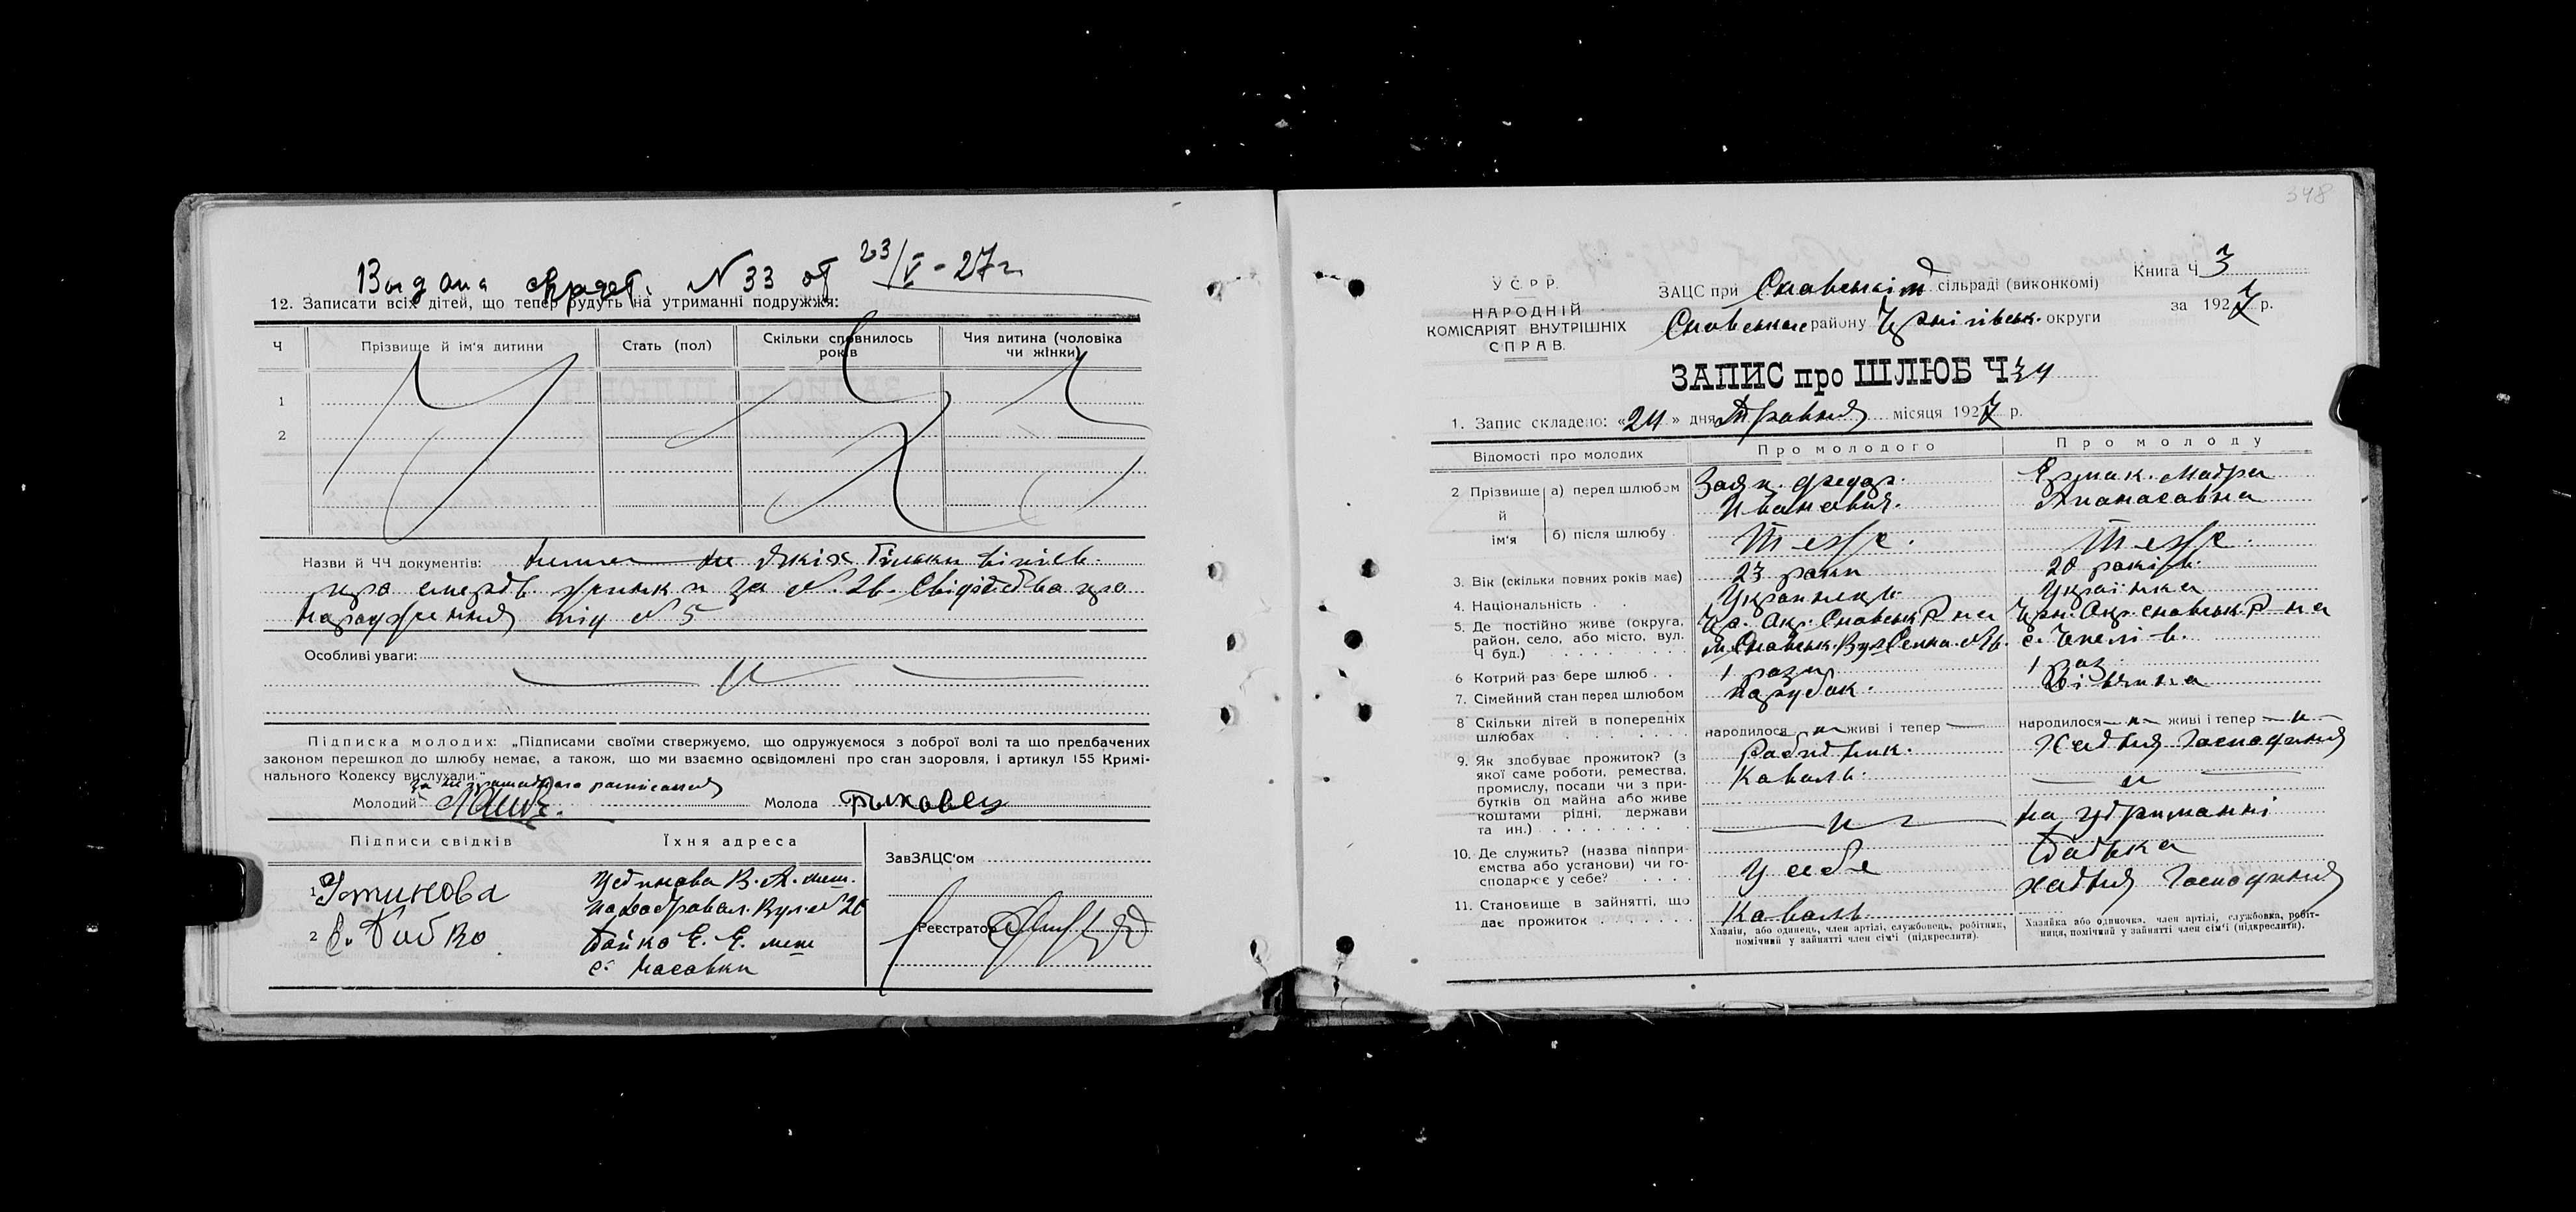 Выдана свидет. N 33 от 23/V - 27 г.
12. Записати всіх дітей, що тепер будуть на утриманні подружжя:
Ч
Прізвище й ім'я дитини
Стать (пол)
Скільки сповнилось років
Чия дитина (чоловіка чи жінки)
1
2
Назви й ЧЧ документів:
про смерть жинки за № 26. Свідоцтва про
народження під № 5
Особливі уваги:
Підписка молодих: „Підписами своїми стверджуємо, що одружуємося з доброї волі та що предбачених
законом перешкод до шлюбу немає, а також, що ми взаємно освідомлені про стан здоровля, і артикул 155 Кримі-
нального Кодексу вислухали."
Молодий
Молода
Підписи свідків
Їхня адреса
ЗавЗАЦС'ом
1 Устинова
Устинова В. А. меш.
Вул. № 20
Реєстратор
2
Бойко Е. Е. меш
с. Носовки
348
У С Р Р.
НАРОДНІЙ
КОМІСАРІЯТ ВНУТРІШНІХ
СПРАВ.
ЗАЦС при Сновській сільраді (виконкомі)
Сновське району Чернігівськ. округи
Книга Ч 3
за 1927 р.
ЗАПИС про ШЛЮБ Ч 34
1. Запис складено: «24» дня Травня місяця 1927 р.
Відомості про молодих
Про молодого
Про молоду
2 Прізвище й ім'я
а) перед шлюбом
Заяц. Федор.
Иванович.
Ермак. Мотря
Апанасовна
б) після шлюбу
Теж.
Теж.
3. Вік (скільки повних років має)
23 роки
20 років.
4. Національність . .
Украинець
Українка
5. Де постійно живе (округа,
район, село, або місто, вул.
Ч буд.) . . . . . .
Чер. Окр. Сновськ. Р на
м. Сновськ. Вул
Черн. Окр. Сновськ. Р на
6 Котрий раз бере шлюб . .
1 раз
1 раз
7. Сімейний стан перед шлюбом
парубок.
Дівчина
8 Скільки дітей в попередніх
шлюбах . . . . . . .
народилося — " — живі і тепер —
народилося — " — живі і тепер — " —
9. Як здобуває прожиток? (з
якої саме роботи, ремества,
промислу, посади чи з при-
бутків од майна або живе
коштами рідні, держави
та ин.) . . . . . . . .
Робитник.
Коваль.
Хатня Господиня
— " —
на утриманні
батька
10. Де служить? (назва підпри-
ємства або установи) чи го-
сподарює у себе? . . . .
У себе
Хатня Господиня
11. Становище в зайнятті, що
дає прожиток . . . . . . .
Коваль
Хазяїн, або одинець, член артілі, службовець, робітник,
помічний у зайнятті член сім'ї (підкреслити).
Хазяйка або одиночка, член артілі, службовка, робіт-
ниця, помічний у зайнятті член сім'ї (підкреслити).